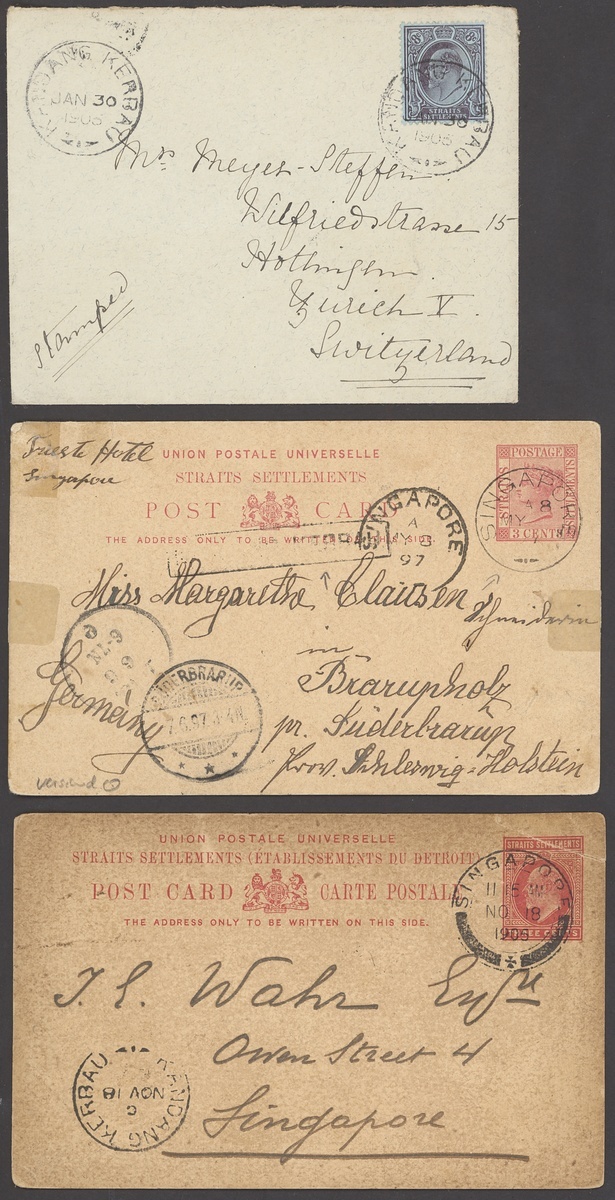 KANDANG KERBAU
JAN 30
1906
STRAITS
SETTLEMENTS
KANDANG KERBAU
JAN 30
1906
Mrs Meyer-Steffen
Wilfriedstrasse 15
Hottingen
Zurich V.
Switzerland
Stamped
Trieste Hotel
Singapore
UNION POSTALE UNIVERSELLE
STRAITS SETTLEMENTS
POST CARD
THE ADDRESS ONLY TO BE WRITTEN ON THIS SIDE.
STRAITS
POSTAGE
SETTLEMENTS
3 CENTS
SINGAPORE
A 8
MY
SINGAPORE
A
MY 8
97
Miss Margaretha Claussen Schneiderin
in
Brarupholz
pr. Süderbrarup
Prov. Schleswig-Holstein
Germany
SÜDERBRARUP
7.6.97
verschied
UNION POSTALE UNIVERSELLE
STRAITS SETTLEMENTS (ÉTABLISSEMENTS DU DETROIT)
POST CARD CARTE POSTALE
THE ADDRESS ONLY TO BE WRITTEN ON THIS SIDE.
STRAITS SETTLEMENTS
THREE CENTS
SINGAPORE
NO 18
1906
Wahr Esqre
Owen Street 4
Singapore
KANDANG KERBAU
NOV 18